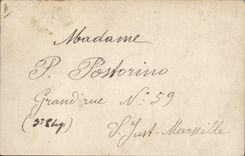 Madame
P. Postorino
Grand'rue N° 59
(3e Etg)
St Just-Marseille